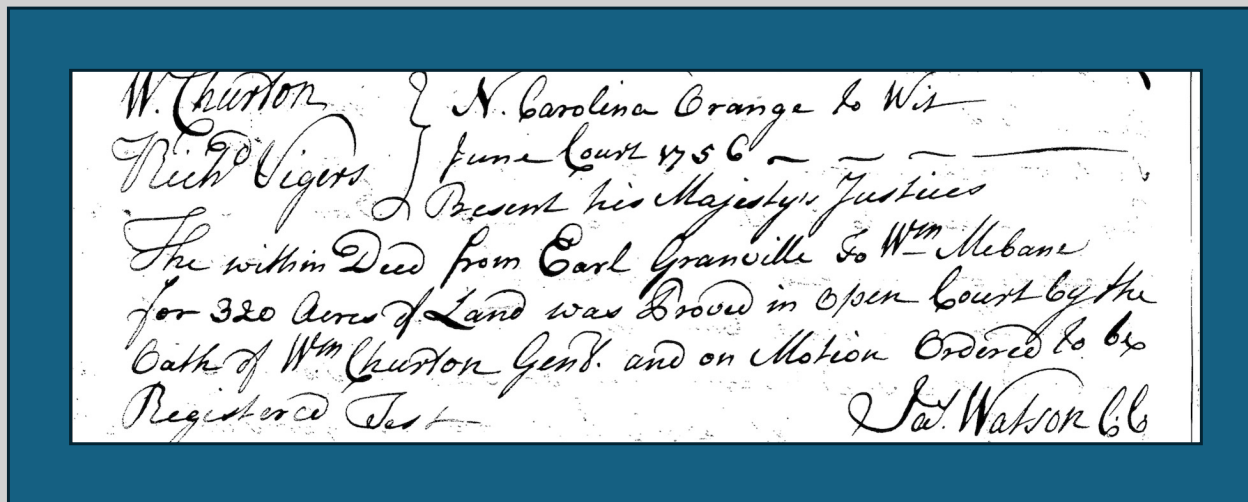 W. Churton } N. Carolina Orange to Wit
Richd Vigers } June Court 1756
Present his Majesty's Justices
The within Deed from Earl Granville to Wm Mebane
for 320 Acres of Land was Proved in Open Court by the
Oath of Wm Churton Gent. and on Motion Ordered to be
Registered Test
Jas. Watson CC